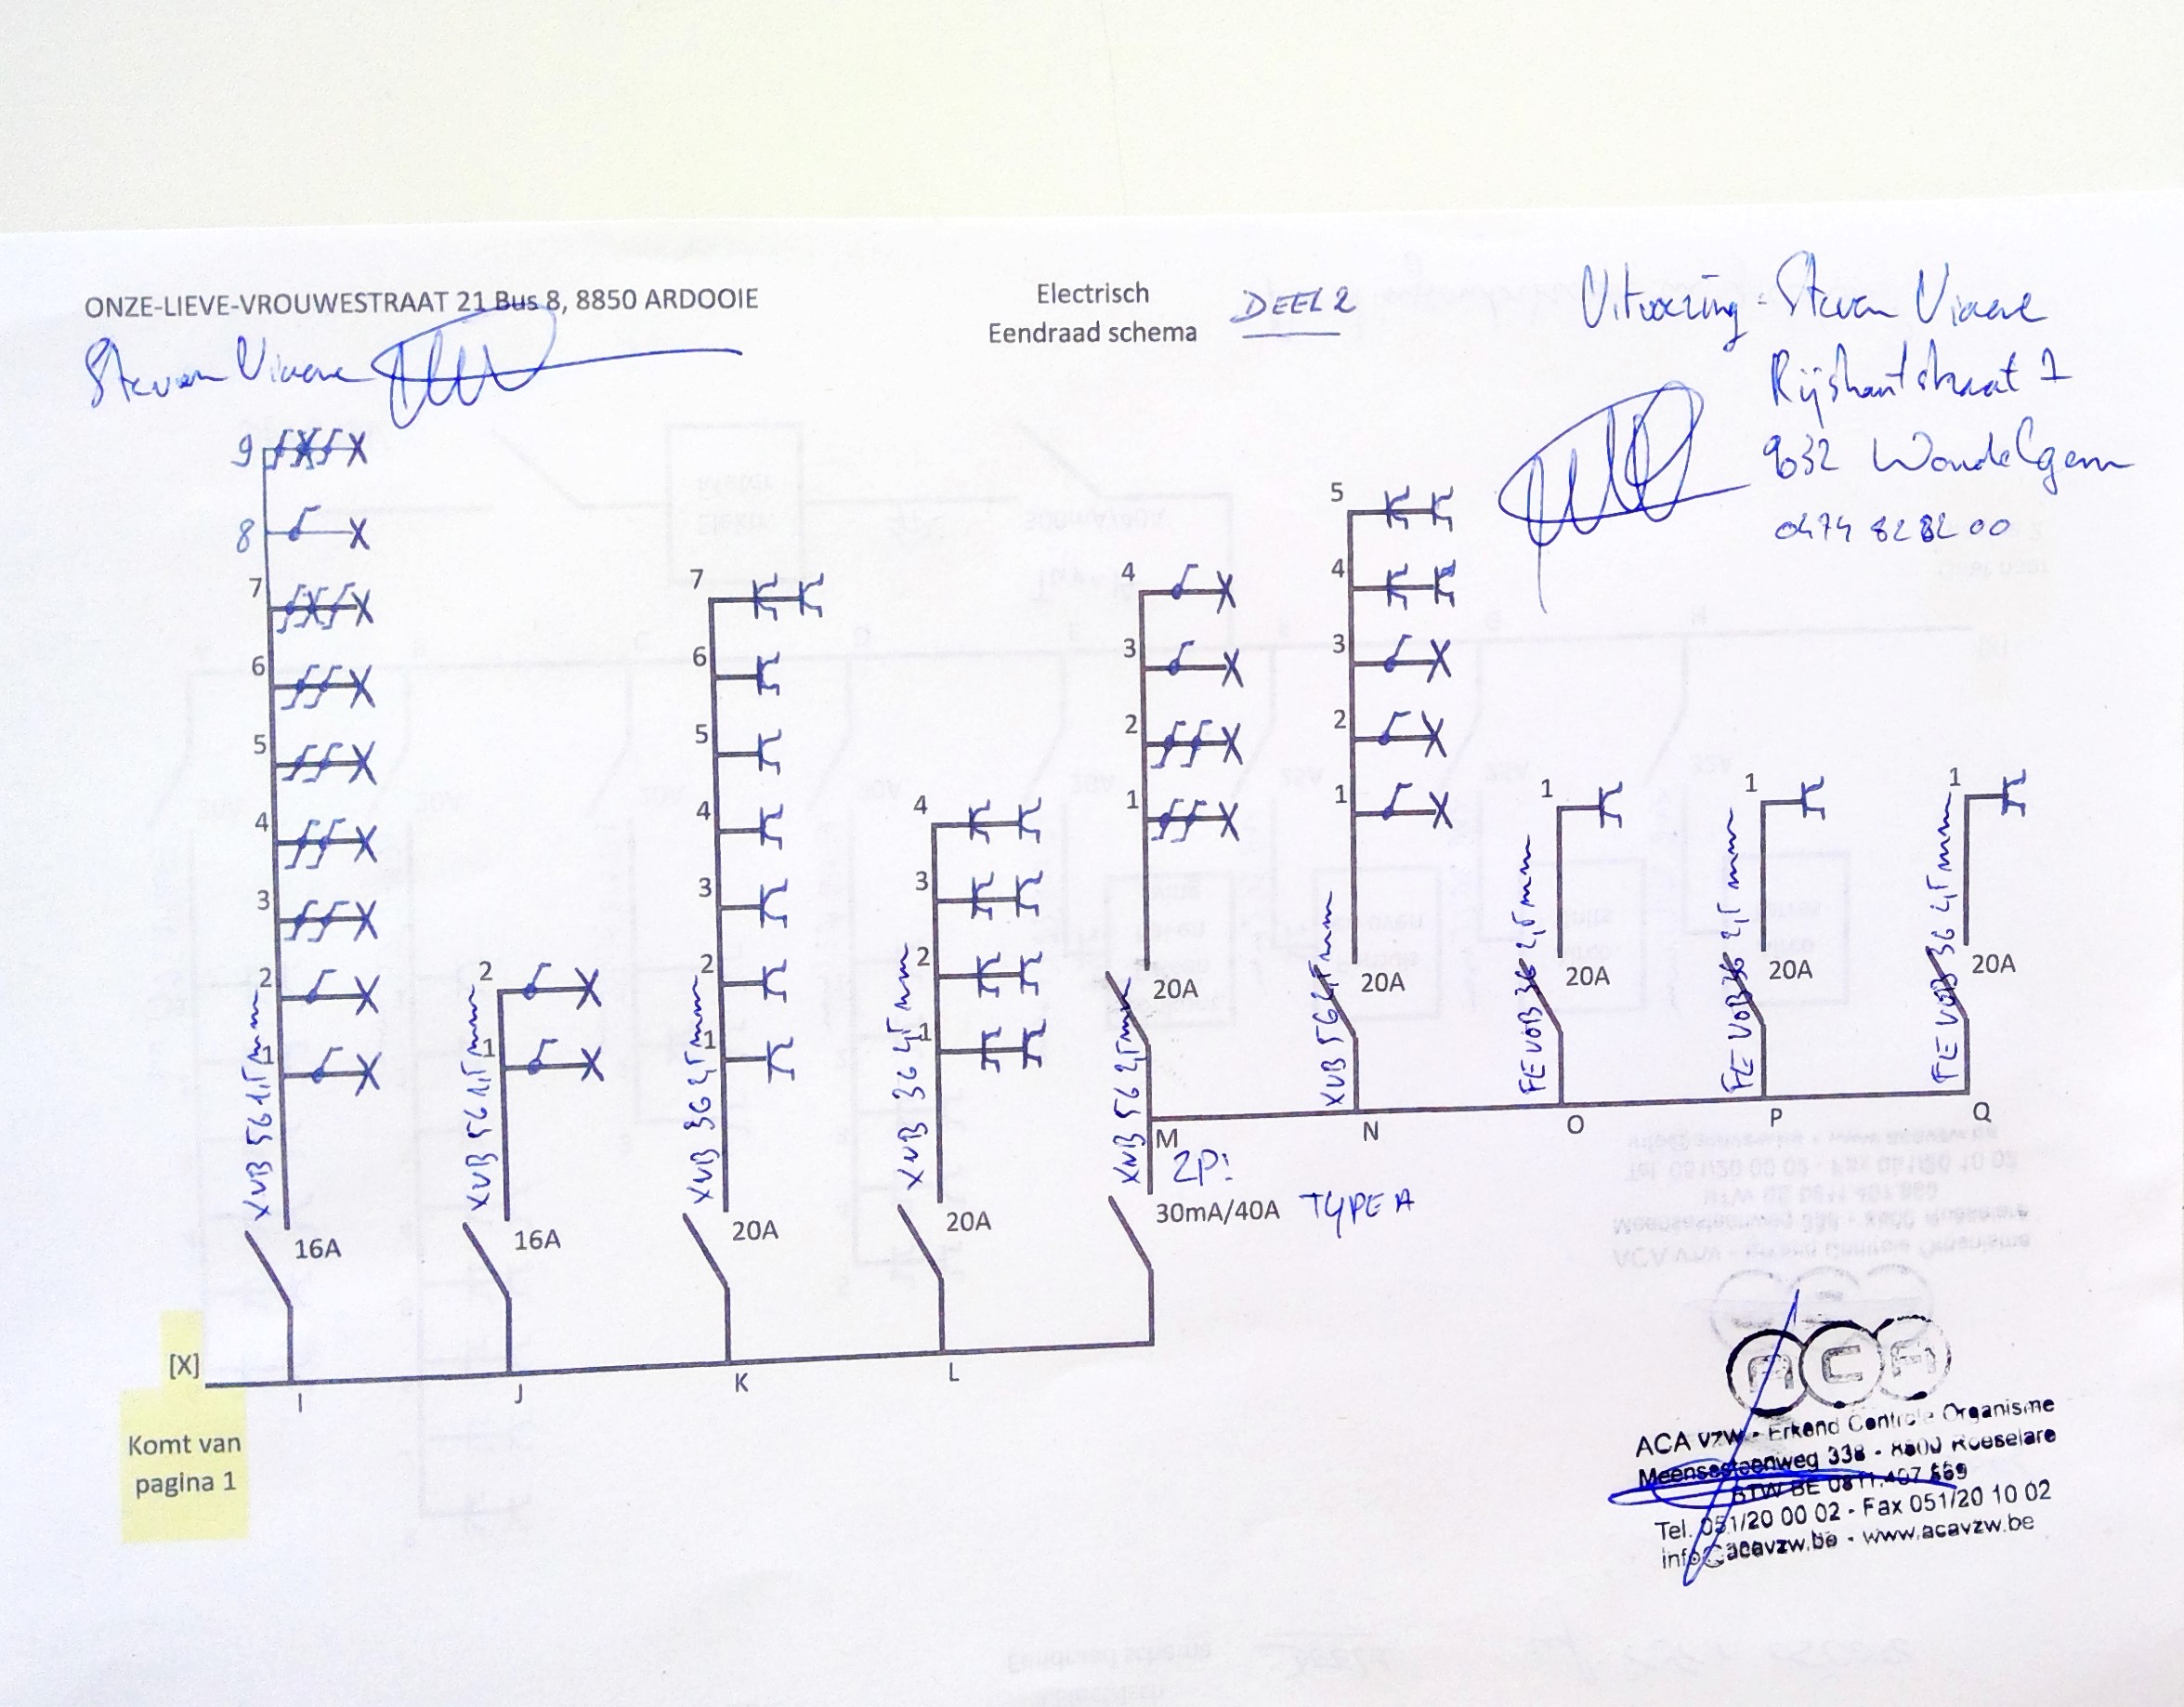 ONZE-LIEVE-VROUWESTRAAT 21 Bus 8, 8850 ARDOOIE
Electrisch
Eendraad schema
DEEL 2
Steven Viaene
Uitvoering - Steven Viaene
1
9032 Wondelgem
0474 82 82 00
9
8
7
6
5
4
3
2
1
XVB 5G 1,5mm
16A
2
1
XVB 5G 1,5mm
16A
7
6
5
4
3
2
1
XVB 3G 2,5mm
20A
4
3
2
1
XVB 3G 2,5mm
20A
4
3
2
1
20A
XVB 5G 2,5mm
5
4
3
2
1
XVB 5G 2,5mm
20A
1
VOB 3G 2,5mm
20A
1
VOB 3G 2,5mm
20A
1
VOB 3G 2,5mm
20A
M
N
O
P
Q
2P:
30mA/40A TYPE A
[X]
I
J
K
L
Komt van
pagina 1
ACA
ACA vzw - Erkend Controle Organisme
Meensesteenweg 338 - 8800 Roeselare
BTW BE 0811.407.869
Tel. 051/20 00 02 - Fax 051/20 10 02
info@acavzw.be - www.acavzw.be